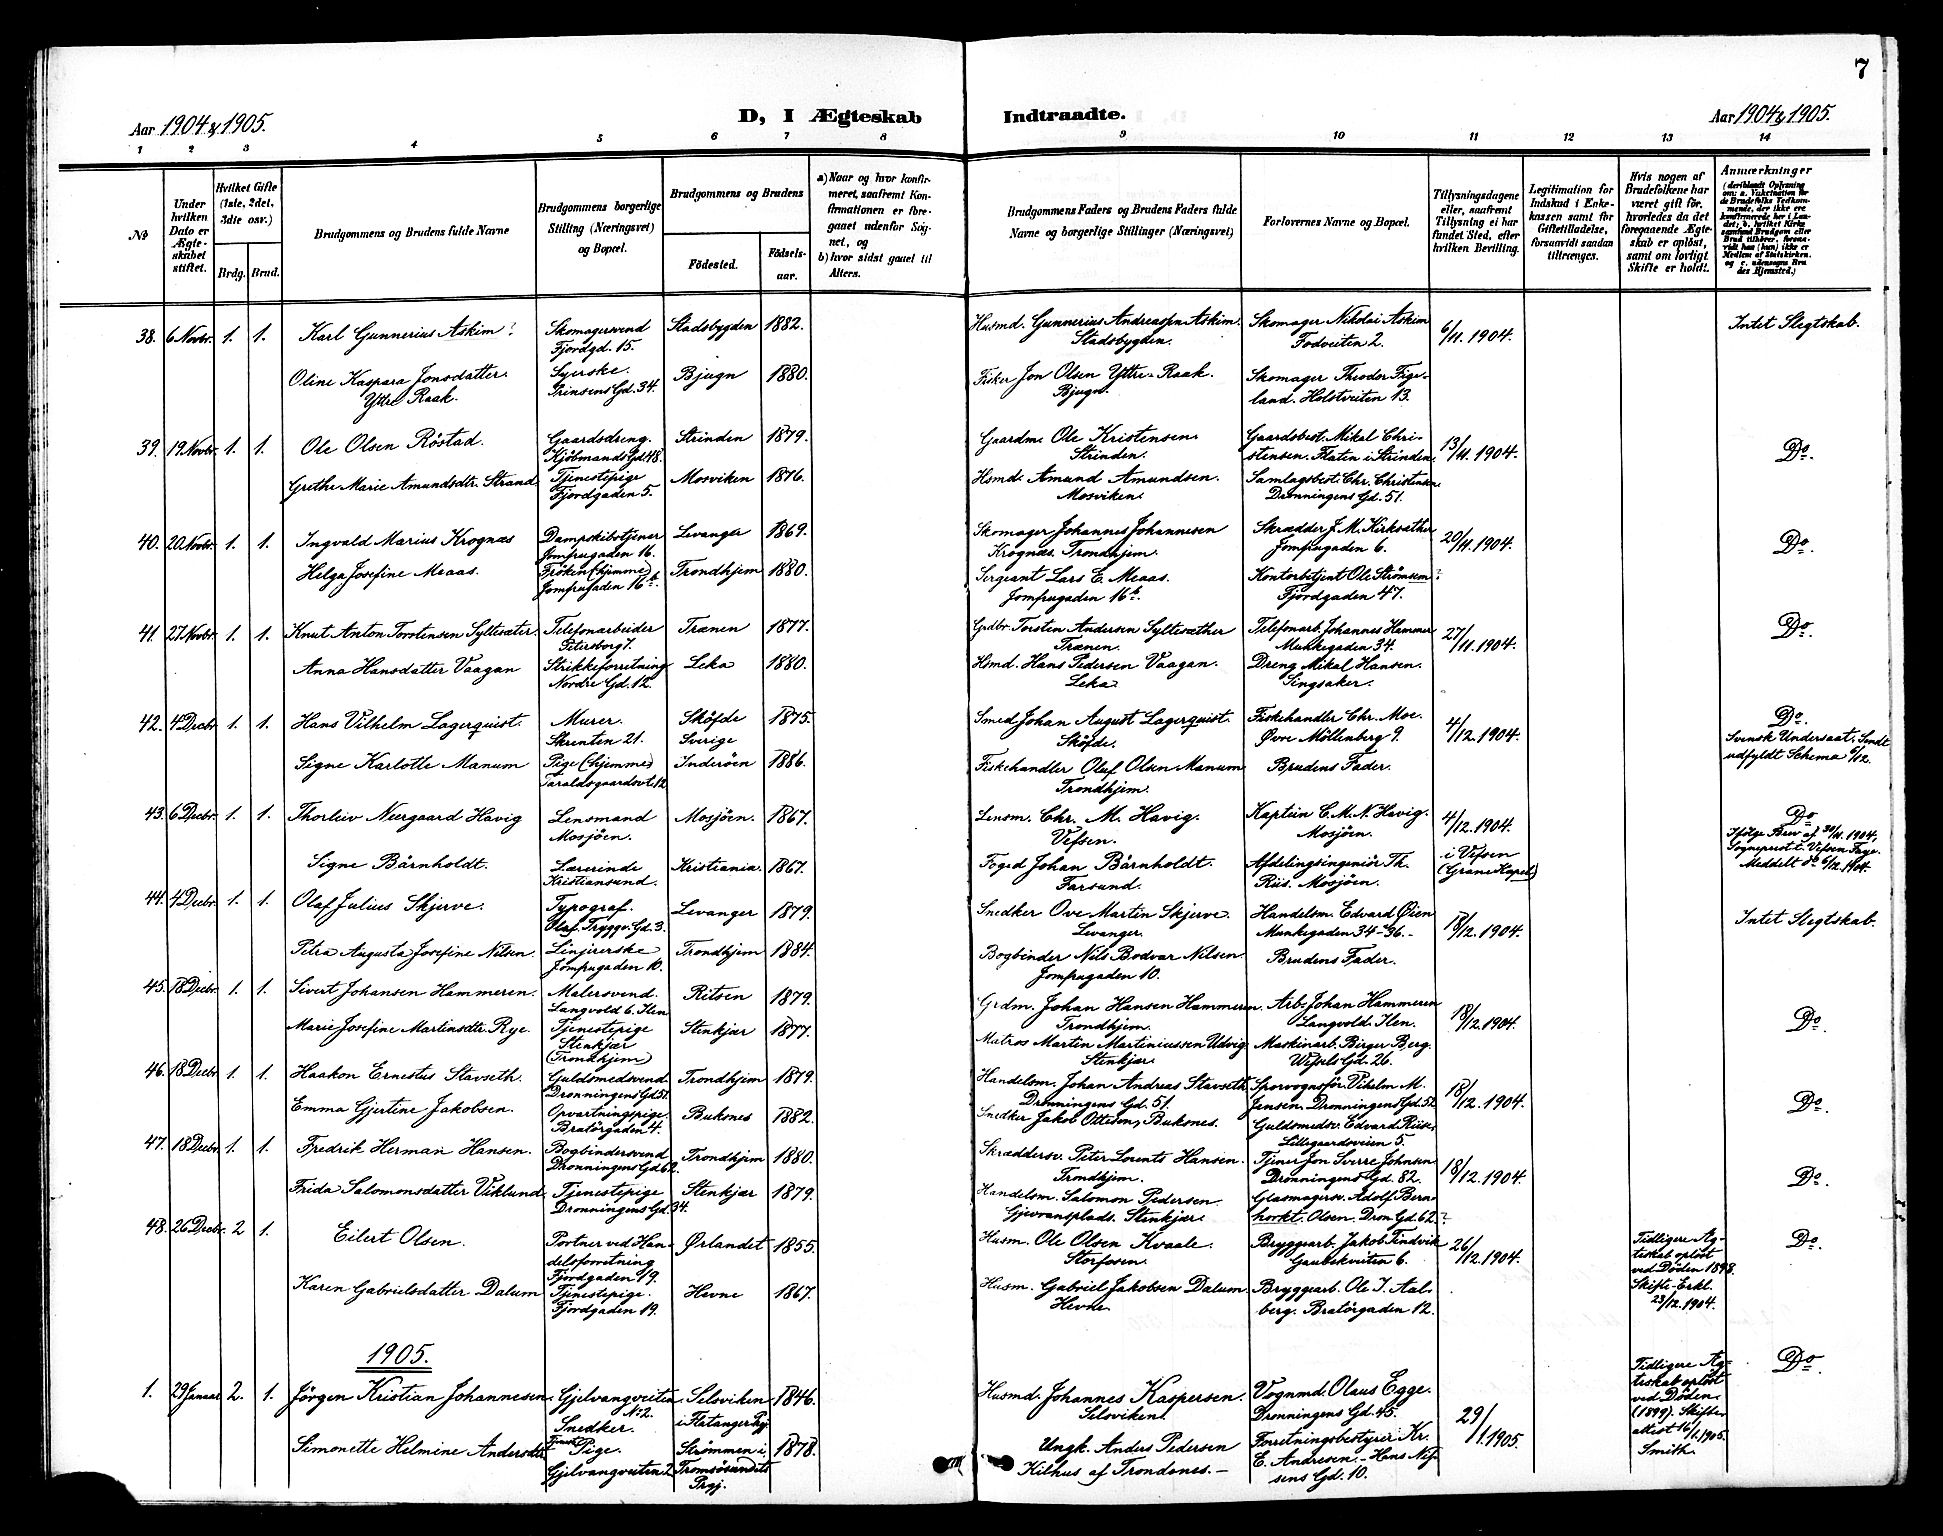 7
Aar 1904 & 1905.
D, I Ægteskab Indtraadte.
Aar 1904 & 1905.
1 2 3 4 5 6 7 8 9 10 11 12 13 14
№
Under hvilken Dato er Ægteskabet stiftet.
Hvilket Gifte (1ste, 2det, 3die osv.)
Brdg. Brud.
Brudgommens og Brudens fulde Navne
Brudgommens borgerlige Stilling (Næringsvei) og Bopæl.
Brudgommens og Brudens
Fødested.
Fødselsaar.
a) Naar og hvor konfirmeret, saafremt Konfirmationen er foregaaet udenfor Sognet, og
b) hvor sidst gaaet til Alters.
Brudgommens Faders og Brudens Faders fulde Navne og borgerlige Stillinger (Næringsvei)
Forlovernes Navne og Bopæl.
Tillysningsdagene eller, saafremt Tillysning ei har fundet Sted, efter hvilken Bevilling.
Legitimation for Indskud i Enkekassen samt for Giftetilladelse, forsaavidt saadan tiltrænges.
Hvis nogen af Brudefolkene har været gift før, hvorledes da det foregaaende Ægteskab er opløst, samt om lovligt Skifte er holdt.
Anmærkninger
38. 6 Novbr. 1. 1. Karl Gunnerius Askim Skomagersvend Fjordgd. 15. Stadsbygden 1882. Husmd. Gunnerius Andreassen Askim. Stadsbygden. Skomager Nikolai Askim Fodveiten 2. 6/11.1904. Intet Slegtskab.
Oline Kaspara Jonsdatter Yttre Raak. Syerske. Prinsens Gd. 34. Bjugn 1880. Fisker Jon Olsen Yttre-Raak. Bjugn. Skomager Theodor Figeland. Holstveiten 13.
39. 19 Novbr. 1. 1. Ole Olsen Röstad. Gaardsdreng. Kjöbmands Gd 48. Strinden 1879. Gaardm. Ole Kristensen Strinden. Gaardsbest. Mikal Christensen. Flaten i Strinden. 13/11.1904. Do.
Grethe Marie Amundsdtr. Strand Tjenestepige Fjordgaden 5. Mosviken 1876. Hsmd. Amund Amundsen. Mosviken. Samlagsbest. Chr. Christensen Dronningens Gd. 51.
40. 20 Novbr. 1. 1. Ingvald Marius Krognæs Dampskibstjener Jomfrugaden 16. Levanger 1869. Skomager Johannes Johannesen Krognæs. Trondhjem. Skrædder J. M. Kirksæther Jomfrugaden 6. 20/11.1904. Do.
Helga Josefine Meaas. Fröken (hjemme) Jomfrugaden 16b. Trondhjem 1880. Sergeant Lars E. Meaas. Jomfrugaden 16b. Kontorbetjent Ole Strömsem Fjordgaden 47.
41. 27 Novbr. 1. 1. Knut Anton Torstensen Syltesæter. Telefonarbeider Petersborg 7. Trænen 1877. Grdbr. Torsten Andersen Syltesæther Trænen. Telefonarb. Johannes Hammer Munkegaden 34. 27/11.1904. Do.
Anna Hansdatter Vaagan Strikkeforretning Nordre Gd. 12. Leka 1880. Hsmd. Hans Pedersen Vaagan. Leka. Dreng Mikal Hansen. Singsaker.
42. 4 Decbr. 1. 1. Hans Vilhelm Lagerquist. Murer. Skrenten 21. Sköfde Sverige 1875. Smed Johan August Lagerquist. Sköfde. Fiskehandler Chr. Moe. Øvre Möllenberg 9. 4/12.1904. Do. Svensk Undersaat. Sendt udfyldt Schema 6/12.
Signe Karlotte Manum Pige (hjemme) Taraldsgaardsvt. 12 Inderöen 1886. Fiskehandler Oluf Olsen Manum Trondhjem. Brudens Fader.
43. 6 Decbr. 1. 1. Thorleiv Neergaard Havig Lensmand Mosjöen. Mosjöen. 1867. Lensm. Chr. M. Havig. Vefsen. Kaptein C. M. N. Havig. Mosjöen. 4/12.1904. i Vefsen (Grane Kapel) Do Ifölge Brev af 30/11.1904, Sogneprest t. Vefsen Meddelt do. 6/12.1904.
Signe Bärnholdt. Lærerinde Kristiansund. Kristiania. 1867. Foged Johan Bärnholdt. Farsund. Afdelingsingeniör Th. Riis. Mosjöen.
44. 4 Decbr. 1. 1. Olaf Julius Skjerve. Typograf. Olaf Tryggv. Gd. 3. Levanger 1879. Snedker Ove Martin Skjerve Levanger. Handelsm. Edvard Øien Munkegaden 34-36. 18/12.1904. Intet Slegtskab.
Petra Augusta Josefine Nilsen. Linjererske Jomfrugaden 10. Trondhjem 1884. Bogbinder Nils Bodvar Nilsen. Jomfrugaden 10. Brudens Fader.
45. 18 Decbr. 1. 1. Sivert Johansen Hammeren. Malersvend. Langvold 6. Ilen Ritsen 1879. Grdm. Johan Hansen Hammeren. Trondhjem. Arb. Johan Hammeren Langvold. Ilen. 18/12.1904. Do.
Marie Josefine Martinsdtr. Rye. Tjenestepige Stenkjær (Trondhjem) Stenkjær 1877. Matros Martin Martiniussen Udvig Stenkjær. Maskinarb. Birger Berg. Wessels Gd. 26.
46. 18 Decbr. 1. 1. Haakon Ernestus Stavseth. Guldsmedsvend Dronningens Gd 51. Trondhjem 1879. Handelsm. Johan Andreas Stavseth Dronningens Gd. 51. Sporvognsför. Vihelm M. Jensen. Dronningens Gd. 52 18/12.1904. Do.
Emma Gjertine Jakobsen. Opvartningspige. Bratörgaden 4. Buksnes 1882. Snedker Jakob Ottesen, Buksnes. Guldsmedsv. Edvard Riise, Lillegaardsveien 5.
47. 18 Decbr. 1. 1. Fredrik Herman Hansen. Bogbindersvend Dronningens Gd 62. Trondhjem 1880. Skræddersv. Peter Lorents Hansen. Trondhjem. Tjener Jon Sverre Johnsen Dronningens Gd. 82. 18/12.1904. Do.
Frida Salomonsdatter Viklund. Tjenestepige Dronningens Gd. 34. Stenkjær 1879. Handelsm. Salomon Pedersen Gjevransplads. Stenkjær. Glasmagersv. Adolf Bernhorkt. Olsen. Dron. Gd. 62.
48. 26 Decbr. 2 1. Eilert Olsen. Portner ved Handelsforretning Fjordgaden 19. Ørlandet 1855. Husm. Ole Olsen Kvaale. Storfosen. Bryggearb. Jakob Tindvik Gaubekveiten 6. 26/12.1904. Tidligere Ægteskab oplöst ved Döden 1898. Skifte-Erkl. 23/12.1904. Do.
Karen Gabrielsdatter Dalum Tjenestepige. Fjordgaden 19. Hevne 1867. Husm. Gabriel Jakobsen Dalum. Hevne. Bryggearb. Ole I. Aalberg. Bratörgaden 12.
1905.
1. 29 Januar 2. 1. Jörgen Kristian Johannesen. Gjelvangveiten № 2. Snedker. Selsviken i Flatanger Prgj. 1846. Husmd. Johannes Kaspersen. Selsviken. Vognmd. Olaus Egge. Dronningens Gd. 45. 29/1.1905. Tidligere Ægteskab oplöst ved Döden. (1899). Skifteattest 16/1.1905. Smith. Do
Simonette Helmine Andersdtr Tjeneste Pige. Gjelvangveiten 2. Strømmen i Tromsösundets Prgj. 1878. Ungk. Anders Pedersen Kilhus af Trondenes. Forretningsbestyrer Kr. E. Andresen. - Hans Nissens Gd. 10.